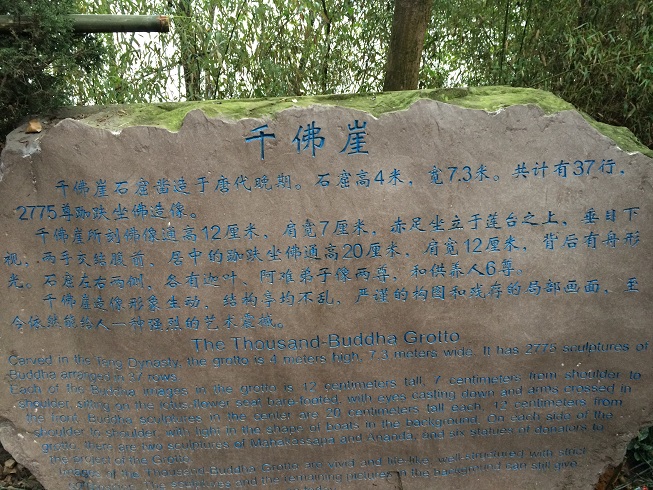 千佛崖
千佛崖石窟凿造于唐代晚期。石窟高4米，宽7.3米。共计有37行，
2775尊跏趺坐佛造像。
千佛崖所刻佛像通高12厘米，肩宽7厘米，赤足坐立于莲台之上，垂目下
视，两手交结腹前，居中的跏趺坐佛通高20厘米，肩宽12厘米，背后有舟形
光。石窟左右两侧，各有迦叶、阿难弟子像两尊，和供养人6尊。
千佛崖造像形象生动，结构章均不乱，严谨的构图和残存的局部画面，至
今依然能给人一种强烈的艺术震撼。
The Thousand-Buddha Grotto
Carved in the Tang Dynasty, the grotto is 4 meters high, 7.3 meters wide. It has 2775 sculptures of
Buddha arranged in 37 rows.
Each of the Buddha images in the grotto is 12 centimeters tall, 7 centimeters from shoulder to
shoulder, sitting on the lotus-flower seat bare-footed, with eyes casting down and arms crossed in
the front. Buddha sculptures in the center are 20 centimeters tall each, 12 centimeters from
shoulder to shoulder, with light in the shape of boats in the background. On each side of the
grotto, there are two sculptures of Mahakassapa and Ananda, and six statues of donators to
the project of the Grotto.
Images of the Thousand-Buddha Grotto are vivid and life-like, well-structured with strict
The sculptures and the remaining pictures in the background can still give